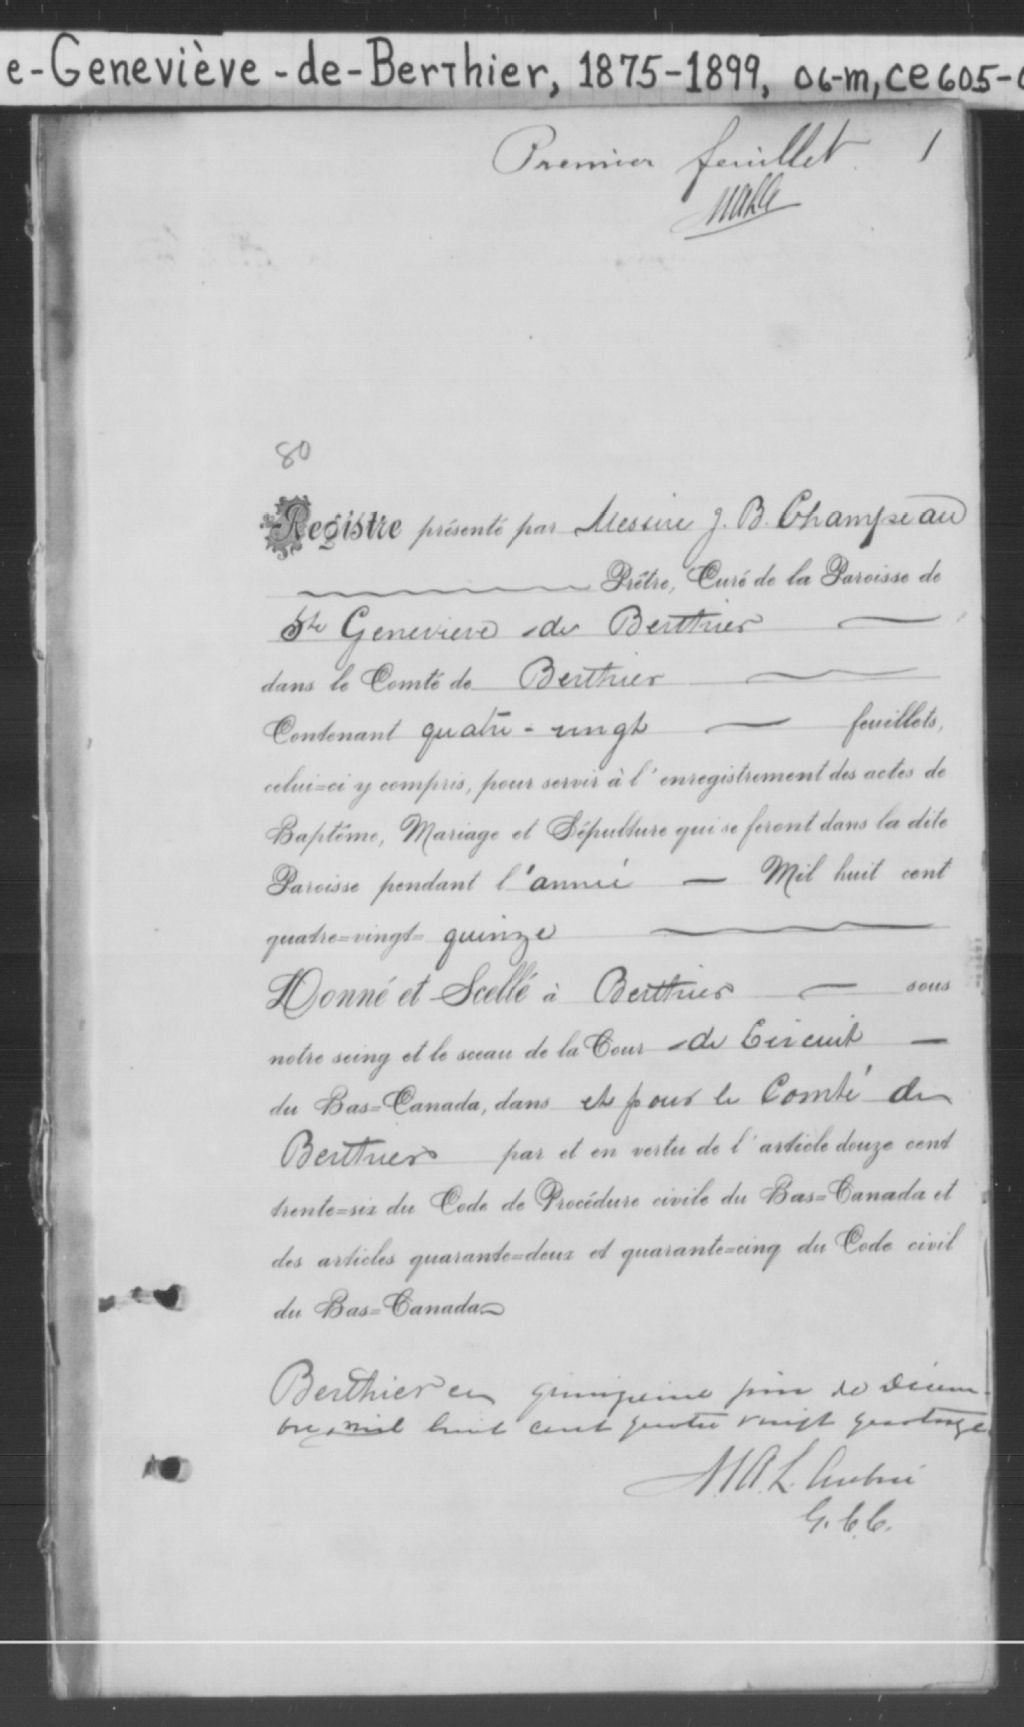 e-Geneviève-de-Berthier, 1875-1899, 06-m, ce605-
Premier feuillet. 1
80
Registre présenté par Messire J. B. Champeau
Prêtre, Curé de la Paroisse de
Ste Genevieve de Berthier
dans le Comté de Berthier
Contenant quatre-vingt feuillets,
celui=ci y compris, pour servir à l'enregistrement des actes de
Baptême, Mariage et Sépulture qui se feront dans la dite
Paroisse pendant l'année Mil huit cent
quatre=vingt= quinze
Donné et Scellé à Berthier sous
notre seing et le sceau de la Cour de Circuit
du Bas=Canada, dans et pour le Comté de
Berthier par et en vertu de l'article douze cent
trente=six du Code de Procédure civile du Bas=Canada et
des articles quarante=deux et quarante=cinq du Code civil
du Bas=Canada
Berthier ce quinzieme jour de Décem-
bre mil huit cent quatre vingt quatorze
M.A.L. Aubin
G.C.C.